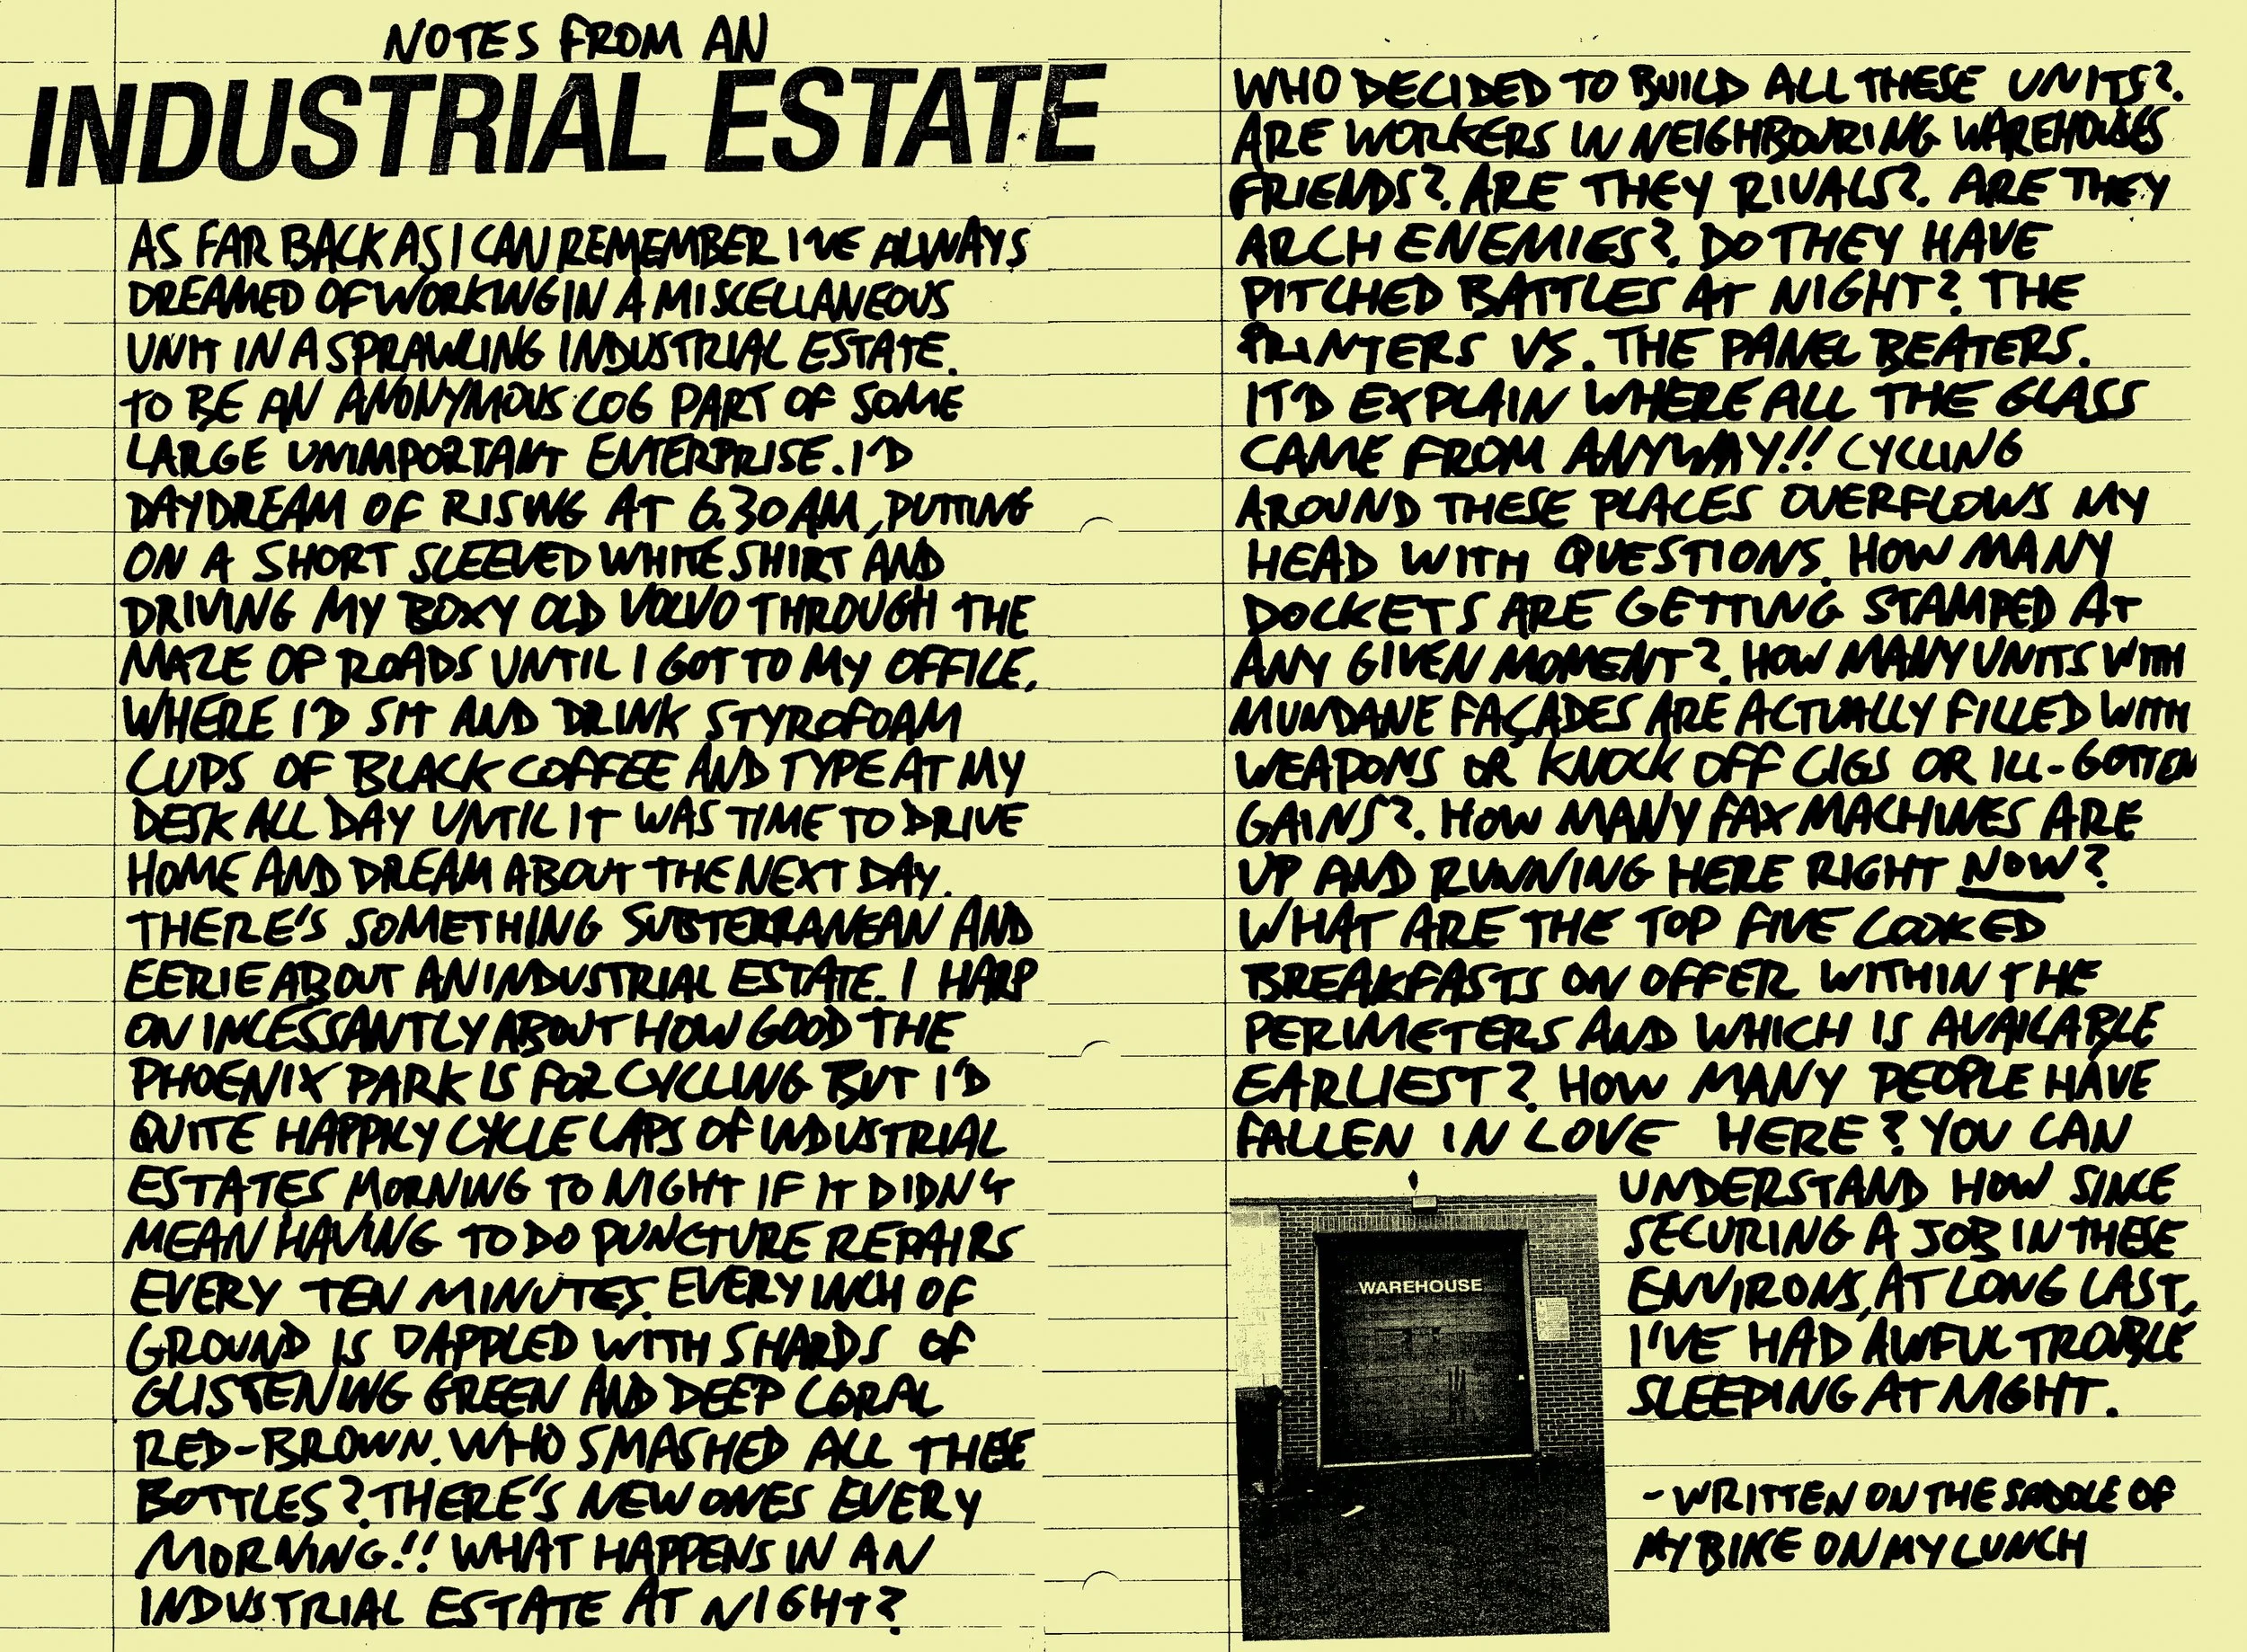 NOTES FROM AN
INDUSTRIAL ESTATE
AS FAR BACK AS I CAN REMEMBER I'VE ALWAYS
DREAMED OF WORKING IN A MISCELLANEOUS
UNIT IN A SPRAWLING INDUSTRIAL ESTATE.
TO BE AN ANONYMOUS COG PART OF SOME
LARGE UNIMPORTANT ENTERPRISE. I'D
DAYDREAM OF RISING AT 6.30AM, PUTTING
ON A SHORT SLEEVED WHITE SHIRT AND
DRIVING MY BOXY OLD VOLVO THROUGH THE
MAZE OF ROADS UNTIL I GOT TO MY OFFICE.
WHERE I'D SIT AND DRINK STYROFOAM
CUPS OF BLACK COFFEE AND TYPE AT MY
DESK ALL DAY UNTIL IT WAS TIME TO DRIVE
HOME AND DREAM ABOUT THE NEXT DAY.
THERE'S SOMETHING SUBTERRANEAN AND
EERIE ABOUT AN INDUSTRIAL ESTATE. I HARP
ON INCESSANTLY ABOUT HOW GOOD THE
PHOENIX PARK IS FOR CYCLING BUT I'D
QUITE HAPPILY CYCLE LAPS OF INDUSTRIAL
ESTATES MORNING TO NIGHT IF IT DIDN'T
MEAN HAVING TO DO PUNCTURE REPAIRS
EVERY TEN MINUTES. EVERY INCH OF
GROUND IS DAPPLED WITH SHARDS OF
GLISTENING GREEN AND DEEP CORAL
RED-BROWN. WHO SMASHED ALL THESE
BOTTLES? THERE'S NEW ONES EVERY
MORNING!! WHAT HAPPENS IN AN
INDUSTRIAL ESTATE AT NIGHT?
WHO DECIDED TO BUILD ALL THESE UNITS?.
ARE WORKERS IN NEIGHBOURING WAREHOUSES
FRIENDS?. ARE THEY RIVALS?. ARE THEY
ARCH ENEMIES?. DO THEY HAVE
PITCHED BATTLES AT NIGHT? THE
PRINTERS VS. THE PANEL BEATERS.
IT'D EXPLAIN WHERE ALL THE GLASS
CAME FROM ANYWAY!! CYCLING
AROUND THESE PLACES OVERFLOWS MY
HEAD WITH QUESTIONS. HOW MANY
DOCKETS ARE GETTING STAMPED AT
ANY GIVEN MOMENT?. HOW MANY UNITS WITH
MUNDANE FAÇADES ARE ACTUALLY FILLED WITH
WEAPONS OR KNOCK OFF CIGS OR ILL-GOTTEN
GAINS?. HOW MANY FAX MACHINES ARE
UP AND RUNNING HERE RIGHT NOW?
WHAT ARE THE TOP FIVE COOKED
BREAKFASTS ON OFFER WITHIN THE
PERIMETERS AND WHICH IS AVAILABLE
EARLIEST?. HOW MANY PEOPLE HAVE
FALLEN IN LOVE HERE? YOU CAN
UNDERSTAND HOW SINCE
SECURING A JOB IN THESE
ENVIRONS, AT LONG LAST,
I'VE HAD AWFUL TROUBLE
SLEEPING AT NIGHT.
WAREHOUSE
- WRITTEN ON THE SADDLE OF
MY BIKE ON MY LUNCH